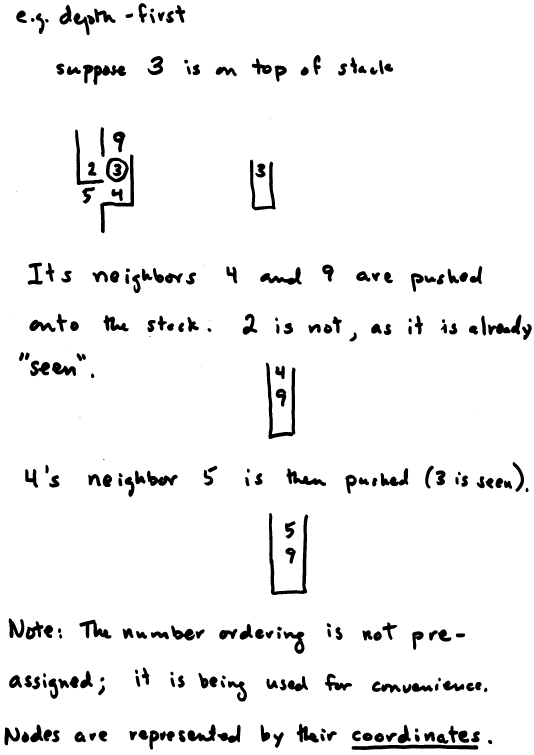 e.g. depth-first
suppose 3 is on top of stack
9
2 3
5 4
3
Its neighbors 4 and 9 are pushed
onto the stack. 2 is not, as it is already
"seen".
4
9
4's neighbor 5 is then pushed (3 is seen).
5
9
Note: The number ordering is not pre-
assigned; it is being used for convenience.
Nodes are represented by their coordinates.